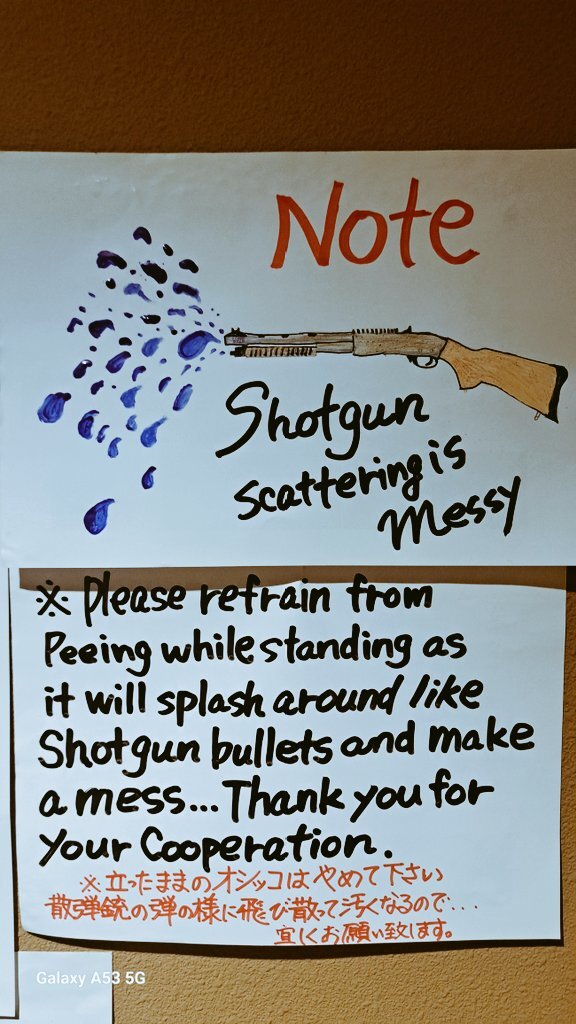 Note
Shotgun
scattering is
Messy
※ Please refrain from
Peeing while standing as
it will splash around like
Shotgun bullets and make
a mess... Thank you for
your Cooperation.
※立ったままのオシッコはやめて下さい
散弾銃の弾の様に飛び散って汚くなるので...
宜しくお願い致します。
Galaxy A53 5G